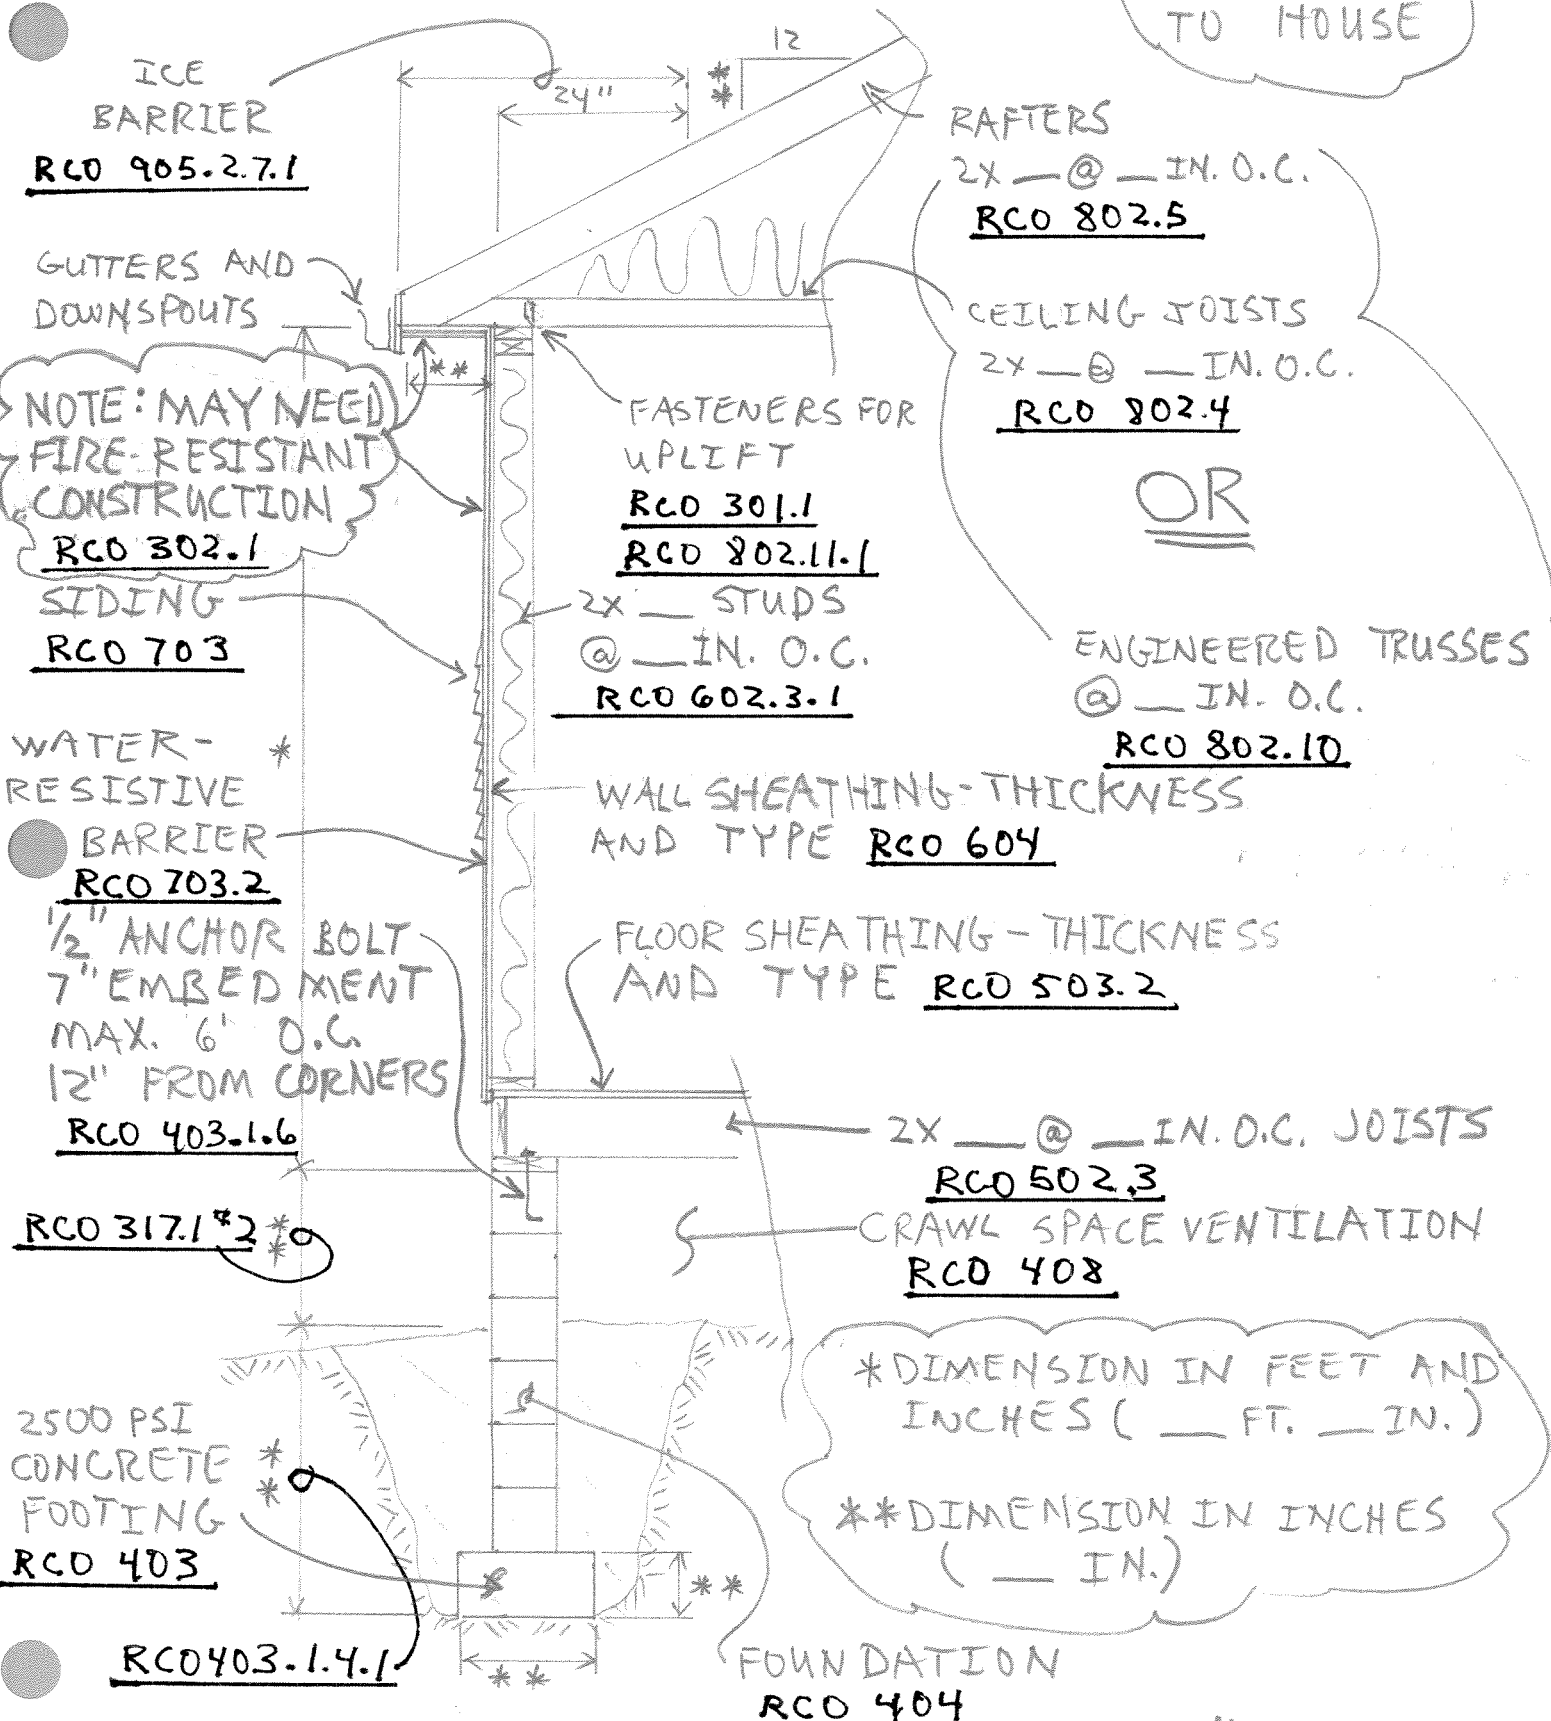 TO HOUSE
12
ICE
BARRIER
RCO 905.2.7.1
24"
**
RAFTERS
2X __ @ __ IN. O.C.
RCO 802.5
GUTTERS AND
DOWNSPOUTS
CEILING JOISTS
2X __ @ __ IN. O.C.
RCO 802.4
OR
**
NOTE: MAY NEED
FIRE-RESISTANT
CONSTRUCTION
RCO 302.1
FASTENERS FOR
UPLIFT
RCO 301.1
RCO 802.11.1
SIDING
RCO 703
2X __ STUDS
@ __ IN. O.C.
RCO 602.3.1
ENGINEERED TRUSSES
@ __ IN. O.C.
RCO 802.10
WATER-
RESISTIVE
BARRIER
RCO 703.2
*
WALL SHEATHING-THICKNESS
AND TYPE RCO 604
1/2" ANCHOR BOLT
7" EMBEDMENT
MAX. 6' O.C.
12" FROM CORNERS
RCO 403.1.6
FLOOR SHEATHING-THICKNESS
AND TYPE RCO 503.2
2X __ @ __ IN. O.C. JOISTS
RCO 502.3
RCO 317.1 #2
**
CRAWL SPACE VENTILATION
RCO 408
*DIMENSION IN FEET AND
INCHES ( __ FT. __ IN.)
**DIMENSION IN INCHES
( __ IN.)
2500 PSI
CONCRETE
FOOTING
RCO 403
**
**
RCO403.1.4.1
**
FOUNDATION
RCO 404